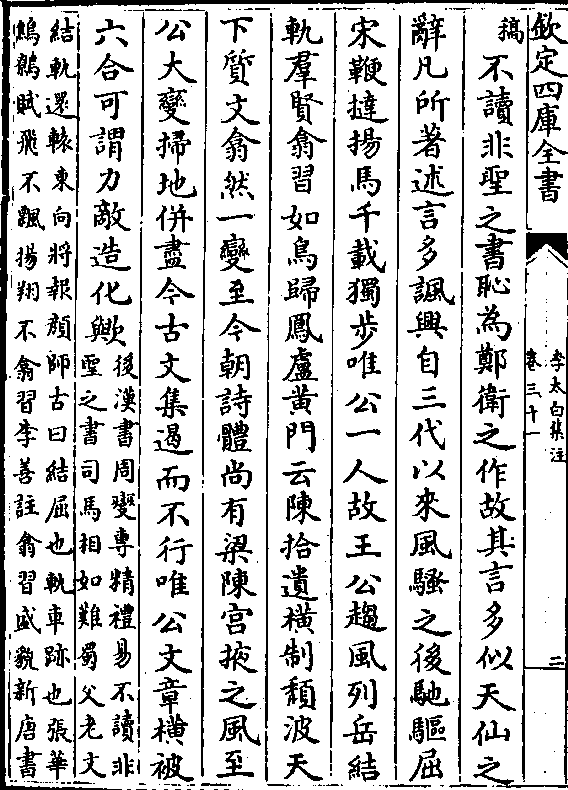 欽定四庫全書
李太白集注
卷三十一
二
稿不讀非聖之書恥為鄭衛之作故其言多似天仙之
辭凡所著述言多諷興自三代以來風騷之後馳驅屈
宋鞭撻揚馬千載獨步唯公一人故王公趨風列岳結
軌羣賢翕習如鳥歸鳳盧黃門云陳拾遺橫制頹波天
下質文翕然一變至今朝詩體尚有梁陳宮掖之風至
公大變掃地併盡今古文集遏而不行唯公文章橫被
六合可謂力敵造化歟
後漢書周燮專精禮易不讀非
聖之書司馬相如難蜀父老文
結軌還轅東向將報顔師古曰結屈也軌車跡也張華
鷦鷯賦飛不飄揚翔不翕習李善註翕習盛貌新唐書